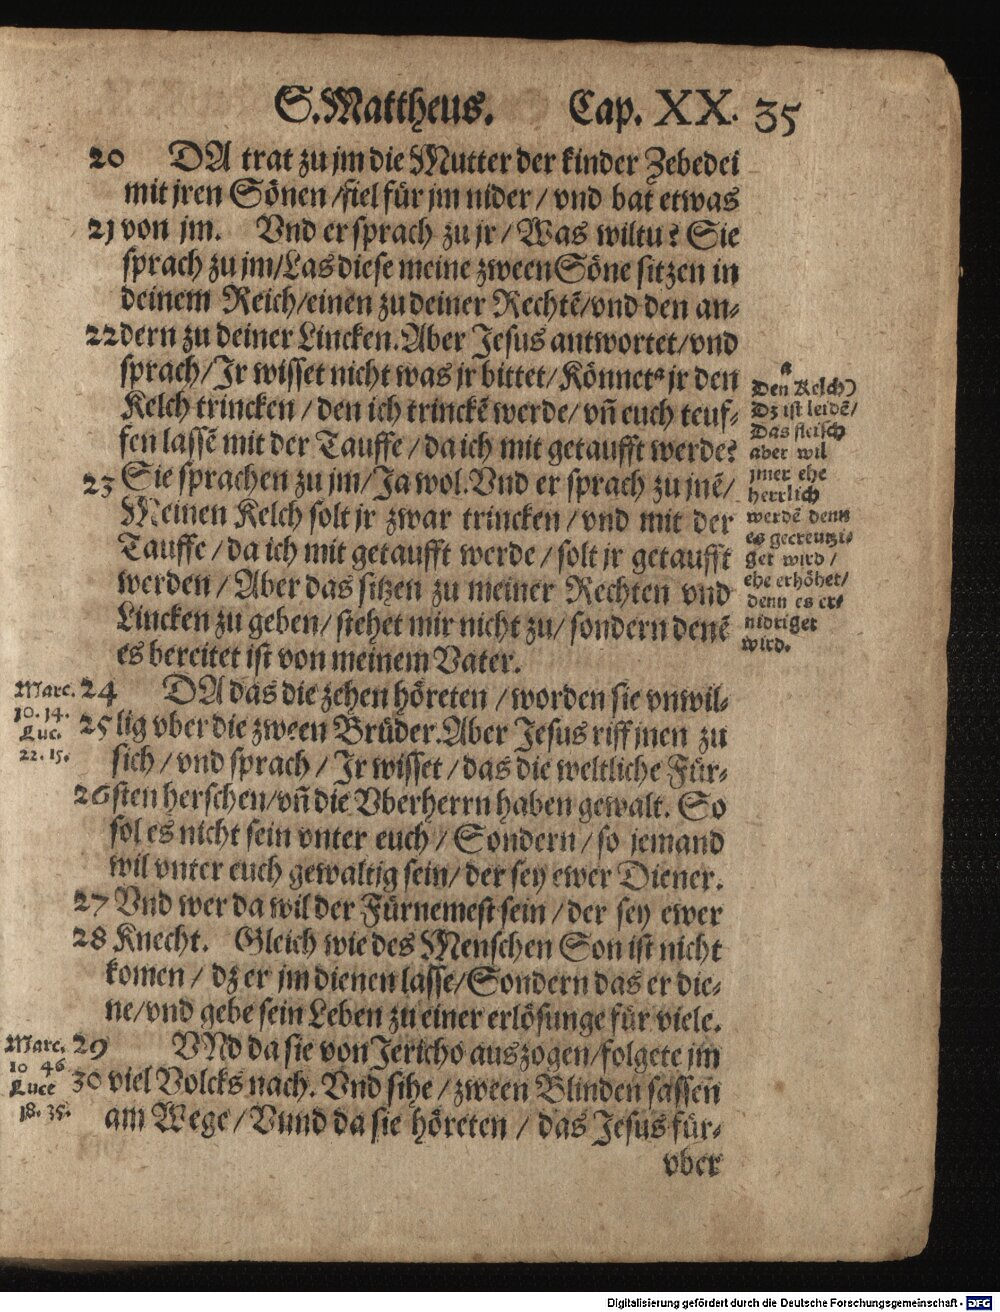 S. Mattheus. Cap. XX. 35
20 DA trat zu jm die Mutter der kinder Zebedei
mit jren Sönen / fiel für jm nider / vnd bat etwas
21 von jm. Vnd er sprach zu jr / Was wiltu? Sie
sprach zu jm / Las diese meine zween Söne sitzen in
deinem Reich / einen zu deiner Rechtē / vnd den an-
22 dern zu deiner Lincken. Aber Jesus antwortet / vnd
sprach / Jr wisset nicht was jr bittet / Könnet a jr den
Kelch trincken / den ich trinckē werde / vñ euch teuf-
fen lassē mit der Tauffe / da ich mit getaufft werde?
23 Sie sprachen zu jm / Ja wol. Vnd er sprach zu jnē /
Meinen Kelch solt jr zwar trincken / vnd mit der
Tauffe / da ich mit getaufft werde / solt jr getaufft
werden / Aber das sitzen zu meiner Rechten vnd
Lincken zu geben / stehet mir nicht zu / sondern denē
es bereitet ist von meinem Vater.
a
Den Kelch)
Dz ist leidē /
Das fleisch
aber wil
jmer ehe
herrlich
werdē denn
es gecreutzi-
get wird /
ehe erhöhet /
denn es er-
nidriget
wird.
Marc.
10. 14.
Luc.
22. 15.
24 DA das die zehen höreten / worden sie vnwil-
25 lig vber die zween Brüder. Aber Jesus rieff jnen zu
sich / vnd sprach / Jr wisset / das die weltliche Für-
26 sten herschen / vñ die Vberherrn haben gewalt. So
sol es nicht sein vnter euch / Sondern / so jemand
wil vnter euch gewaltig sein / der sey ewer Diener.
27 Vnd wer da wil der Fürnemest sein / der sey ewer
28 Knecht. Gleich wie des Menschen Son ist nicht
komen / dz er jm dienen lasse / Sondern das er die-
ne / vnd gebe sein Leben zu einer erlösunge für viele.
Marc.
10 46
Luce
18. 35.
29 VNd da sie von Jericho auszogen / folgete jm
30 viel Volcks nach. Vnd sihe / zween Blinden sassen
am Wege / Vund da sie höreten / das Jesus für-
vber
Digitalisierung gefördert durch die Deutsche Forschungsgemeinschaft - DFG